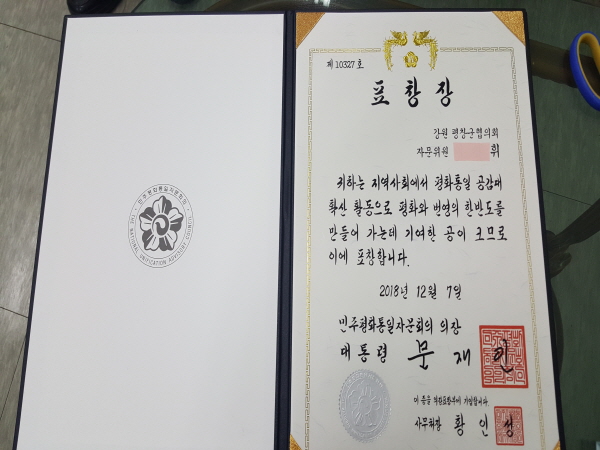 민주평화통일자문회의
THE NATIONAL UNIFICATION ADVISORY COUNCIL
제10327호
표창장
강원 평창군협의회
자문위원 휘
귀하는 지역사회에서 평화통일 공감대
확산 활동으로 평화와 번영의 한반도를
만들어 가는데 기여한 공이 크므로
이에 표창합니다.
2018년 12월 7일
민주평화통일자문회의 의장
대통령 문재인
이 증을 의장표창부에 기입합니다.
사무처장 황인성